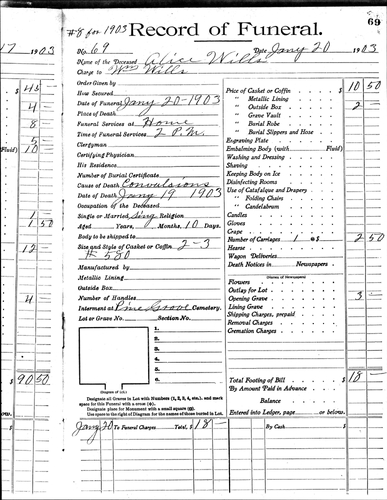 69
#8 for 1903
Record of Funeral.
17 1903
No. 69 Date Jany 20 1903
Name of the Deceased Alice Wills
Charge to Wm Wills
Order Given by
How Secured
Date of Funeral Jany 20-1903
Place of Death
Funeral Services at Home
Time of Funeral Services 2 P.M.
Clergyman
Certifying Physician
His Residence
Number of Burial Certificate
Cause of Death Convulsions
Date of Death Jany 19 1903
Occupation of the Deceased
Single or Married, Sing Religion
Aged Years, Months, 10 Days.
Body to be shipped to
Size and Style of Casket or Coffin 2-3
# 580
Manufactured by
Metallic Lining
Outside Box
Number of Handles
Interment at Pine Grove Cemetery.
Lot or Grave No. Section No.
1.
2.
3.
4.
5.
6.
(Diagram of Lot.)
Designate all Graves in Lot with Numbers (1, 2, 3, 4, etc.), and mark
space for this Funeral with a cross (+).
Designate place for Monument with a small square (□).
Use space to the right of Diagram for the names of those buried in Lot.
Jany 20 To Funeral Charges Total, $ 18 -
Price of Casket or Coffin $ 10 50
" Metallic Lining
" Outside Box 2 -
" Grave Vault
" Burial Robe
" Burial Slippers and Hose
Engraving Plate
Embalming Body (with Fluid)
Washing and Dressing
Shaving
Keeping Body on Ice
Disinfecting Rooms
Use of Catafalque and Drapery
" Folding Chairs
" Candelabrum
Candles
Gloves
Crape
Number of Carriages 1 @ $ 2 50
Hearse
Wagon Deliveries
Death Notices in Newspapers
(Names of Newspapers)
Flowers
Outlay for Lot
Opening Grave 3 -
Lining Grave
Shipping Charges, prepaid
Removal Charges
Cremation Charges
Total Footing of Bill $ 18 -
By Amount Paid in Advance
Balance
Entered into Ledger, page or below.
By Cash $
$ 45 -
4 -
8 -
5 -
Fluid) 10
1
1 50
12 -
4 -
$ 90 50